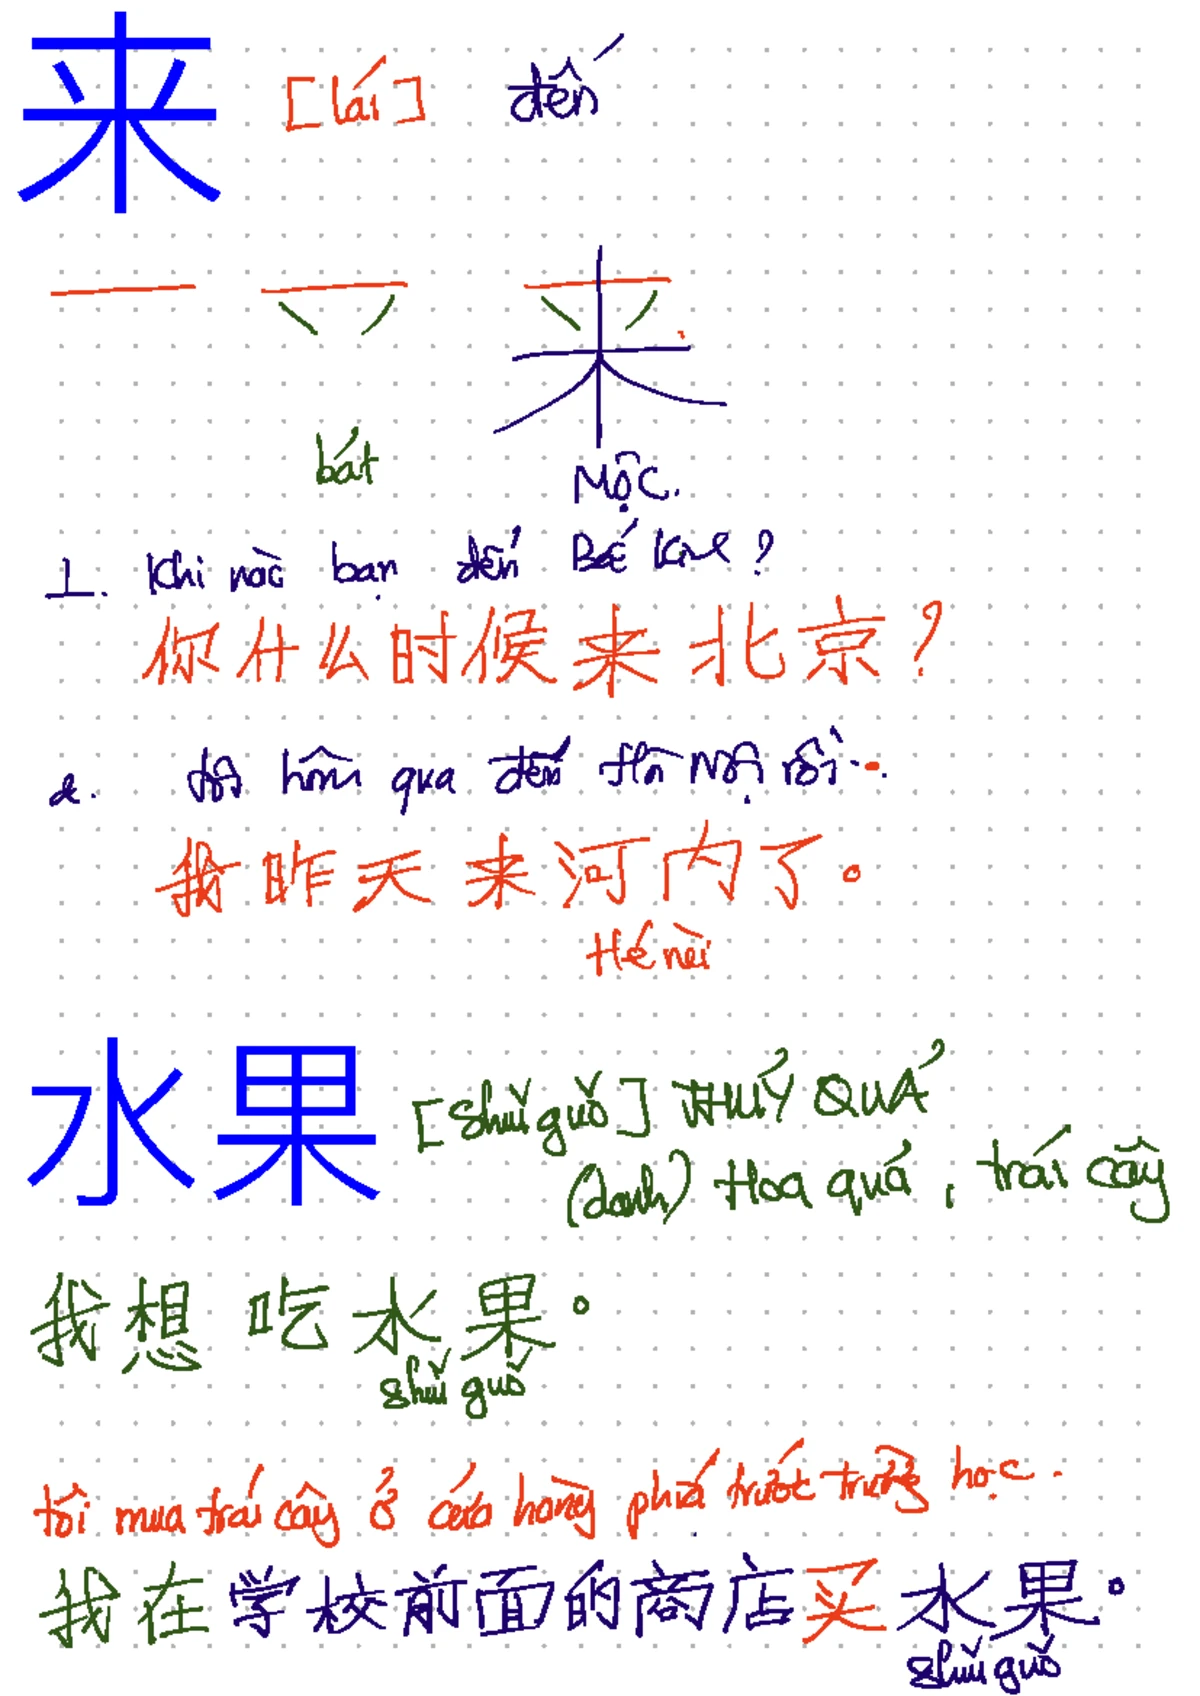 来 [lái] đến
bát
Mộc.
1. Khi nào bạn đến Bắc Kinh?
你什么时候来北京?
2. tôi hôm qua đến Hà Nội rồi.
我昨天来河内了。
Hé nèi
水果 [Shuǐ guǒ] THUỶ QUẢ
(danh) Hoa quả, trái cây
我想吃水果。
shuǐ guǒ
tôi mua trái cây ở cửa hàng phía trước trường học.
我在学校前面的商店买水果。
shuǐ guǒ